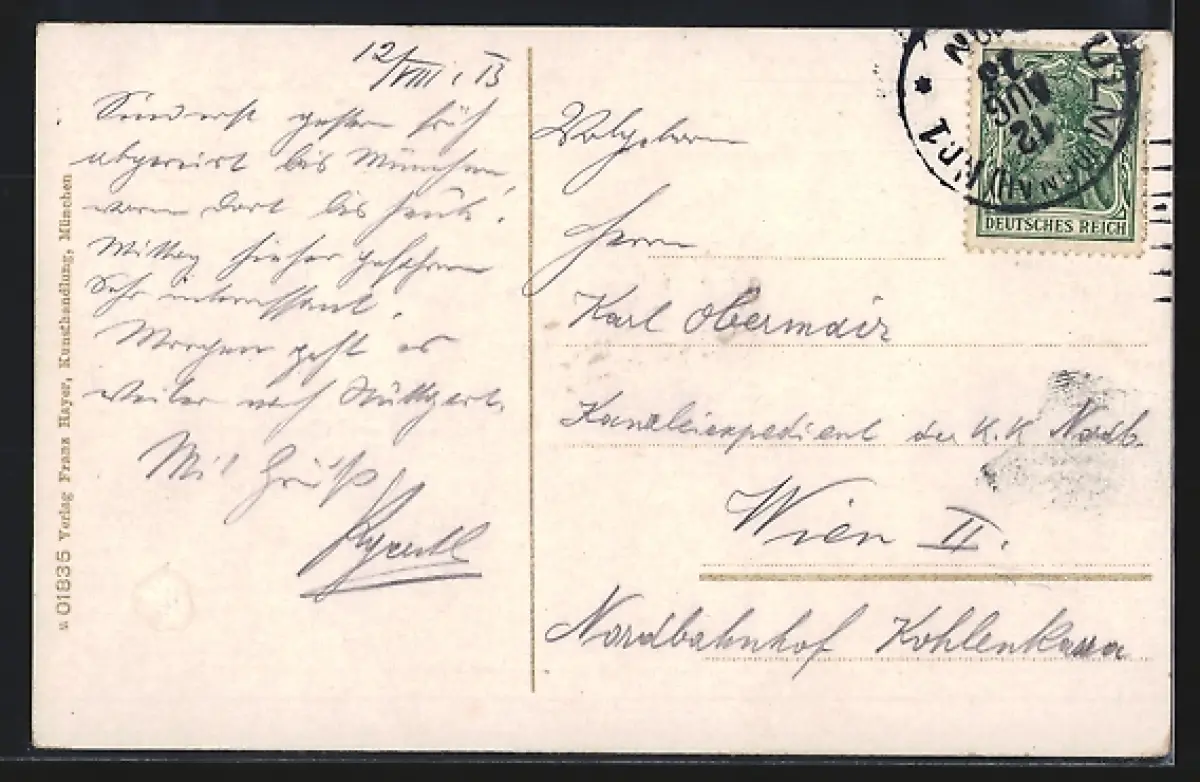 12/VIII. 13
Sind erst gestern früh
abgereist bis München,
waren dort bis heute.
Mittag hieher gefahren
Sehr interessant.
Morgen geht es
weiter nach Stuttgart.
Mit Gruß
Wohlgeboren
Herrn
Karl Obermair
Kanzleiexpedient der K.K Nordb.
Wien II.
Nordbahnhof Kohlenkassa
ULM
12 AUG 13
DEUTSCHES REICH
u 01835 Verlag Franz Hayer, Kunsthandlung, München